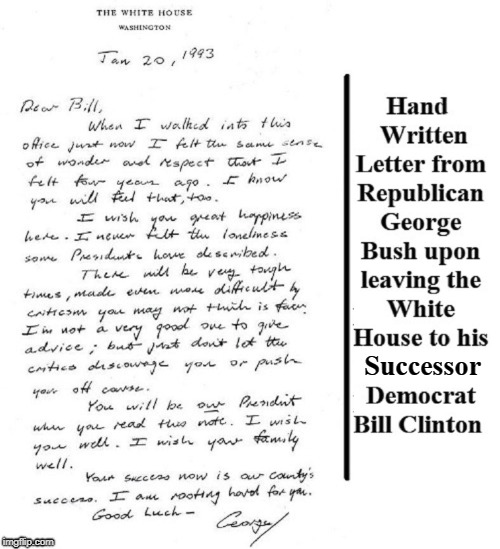 THE WHITE HOUSE
WASHINGTON
Jan 20, 1993
Dear Bill,
When I walked into this
office just now I felt the same sense
of wonder and respect that I
felt four years ago. I know
you will feel that, too.
I wish you great happiness
here. I never felt the loneliness
some Presidents have described.
There will be very tough
times, made even more difficult by
criticism you may not think is fair.
I'm not a very good one to give
advice; but just don't let the
critics discourage you or push
you off course.
You will be our President
when you read this note. I wish
you well. I wish your family
well.
Your success now is our country's
success. I am rooting hard for you.
Good Luck -
George
Hand
Written
Letter from
Republican
George
Bush upon
leaving the
White
House to his
Successor
Democrat
Bill Clinton
imgflip.com